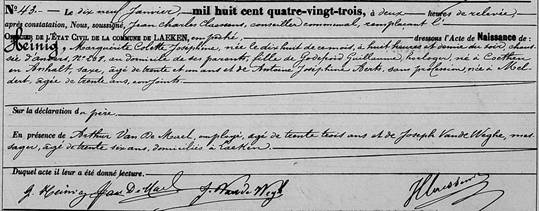 No 43.— Le dix neuf Janvier mil huit cent quatre-vingt-trois, à deux heures de relevée,
après constatation, Nous, soussigné, Jean Charles Claessens, conseiller communal, remplaçant l'
Officier de l'ÉTAT CIVIL DE LA COMMUNE DE LAEKEN, empêché, dressons l'Acte de Naissance de:
Heinig, Marguerite Colette Josephine, née le dix huit de ce mois, à huit heures et demie du soir, chaus
sée d'Anvers, No 261, au domicile de ses parents, fille de Godefroid Guillaume, horloger, né à Coethen
en Anhalt, saxe, âgé de trente et un ans et de Antoine Joséphine Aerts, sans profession, née à Mel
dert, âgée de trente ans, conjoints.
Sur la déclaration du père.
En présence de Arthur Van De Mael, employé, âgé de trente trois ans et de Joseph Vande Weghe, mes
sager, âgé de trente six ans, domiciliés à Laeken.
Duquel acte il leur a été donné lecture.
G. Heinig Van D Mael J. Vande Weghe JClaessens